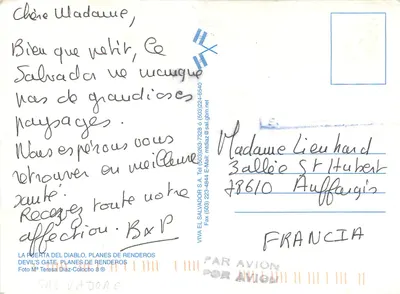 Chère Madame,
Bien que petit, le
Salvador ne manque
pas de grandioses
paysages.
Nous espérons vous
retrouver en meilleure
santé.
Recevez toute notre
affection. BxP
LA PUERTA DEL DIABLO, PLANES DE RENDEROS
DEVIL'S GATE, PLANES DE RENDEROS
Foto Mª Teresa Díaz-Colocho
VIVA EL SALVADOR S.A.
Madame Lienhard
3 allée St Hubert
78610 Auffargis
FRANCIA
PAR AVION
POR AVION